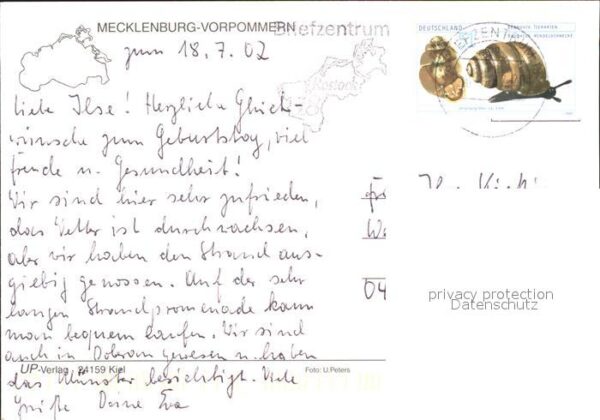 MECKLENBURG-VORPOMMERN
Briefzentrum
DEUTSCHLAND
zum 18.7.02
Rostock
Liebe Ilse! Herzliche Glück-
wünsche zum Geburtstag, viel
Freude u. Gesundheit!
Wir sind hier sehr zufrieden,
das Wetter ist durchwachsen,
aber wir haben den Strand aus-
giebig genossen. Auf der sehr
langen Strandpromenade kann
man bequem laufen. Wir sind
auch in Doberan gewesen u. haben
das Münster besichtigt. Viele
Grüße Deine Eva
04
privacy protection
Datenschutz
UP-Verlag 24159 Kiel
Foto: U.Peters